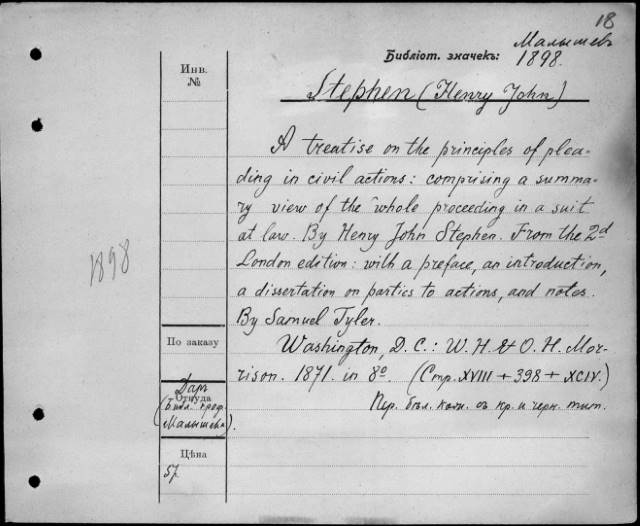 18
Малышевъ
Библіот. значекъ: 1898.
Инв.
№
Stephen (Henry John)
A treatise on the principles of plea-
ding in civil actions: comprising a summa-
ry view of the whole proceeding in a suit
at law. By Henry John Stephen. From the 2d
London edition: with a preface, an introduction,
a dissertation on parties to actions, and notes.
By Samuel Tyler.
1898
По заказу
Washington, D.C.: W. H. & O. H. Mor-
rison. 1871. in 8º. (Стр. XVIII + 398 + XCIV.)
Даръ
Откуда
(Библ. проф.
Малышева).
Пер. бѣл. кож. съ кр. и черн. тит.
Цѣна
57